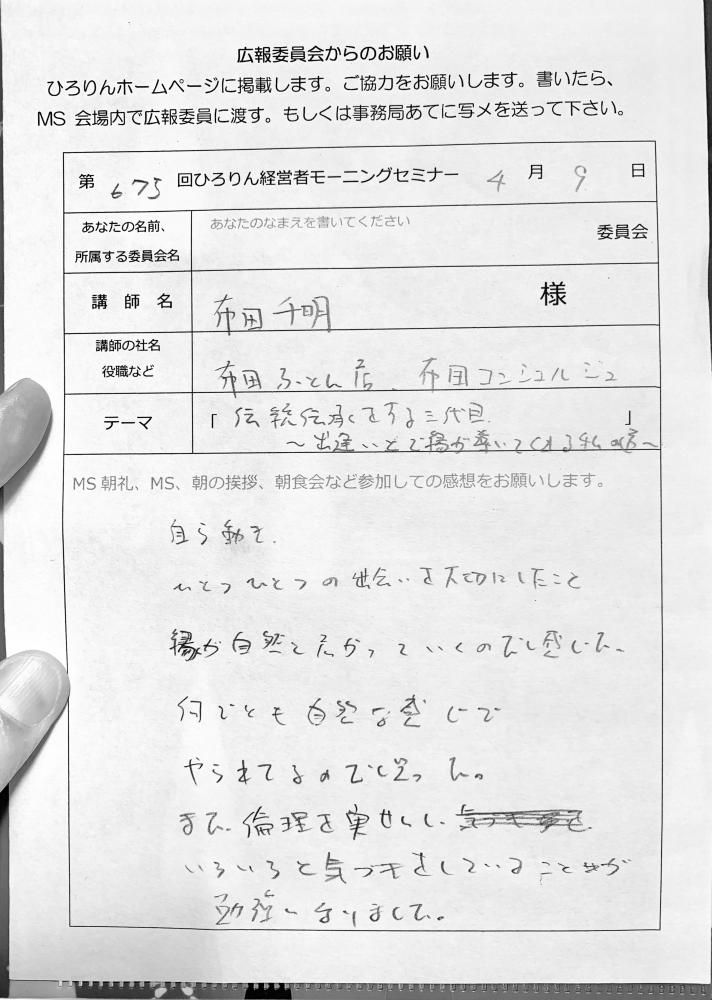 広報委員会からのお願い
ひろりんホームページに掲載します。ご協力をお願いします。書いたら、
MS 会場内で広報委員に渡す。もしくは事務局あてに写メを送って下さい。
第 675 回ひろりん経営者モーニングセミナー 4 月 9 日
あなたの名前、
所属する委員会名
あなたのなまえを書いてください
委員会
講 師 名
布田千明 様
講師の社名
役職など
布田ふとん店、布団コンシュルジュ
テーマ
「伝統伝承をする三代目 」
～出逢いとご縁が導いてくれる私の店～
MS 朝礼、MS、朝の挨拶、朝食会など参加しての感想をお願いします。
自ら動き、
ひとつひとつの出会いを大切にしたこと
縁が自然と広がっていくのだと感じた。
何ごとも自然な感じで
やられてるのだと思った。
また、倫理を実せんし、
いろいろと気づきをしていることが
勉強になりました。